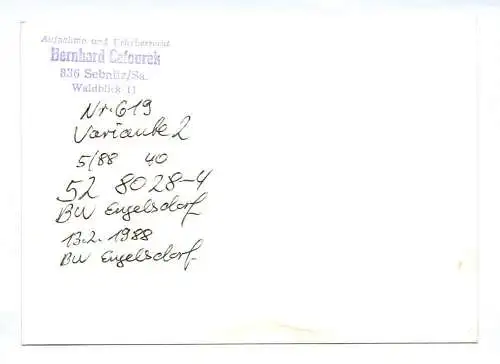 Aufnahme und Urheberrecht
Bernhard Cafourek
836 Sebnitz/Sa.
Waldblick 11
Nr. 619
Variante 2
5/88 40
52 8028-4
BW Engelsdorf
13.2. 1988
BW Engelsdorf